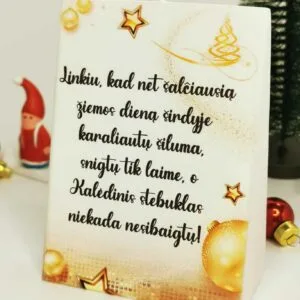 Linkiu, kad net šalčiausią
žiemos dieną širdyje
karaliautų šiluma,
snigtų tik laime, o
Kalėdinis stebuklas
niekada nesibaigtų!